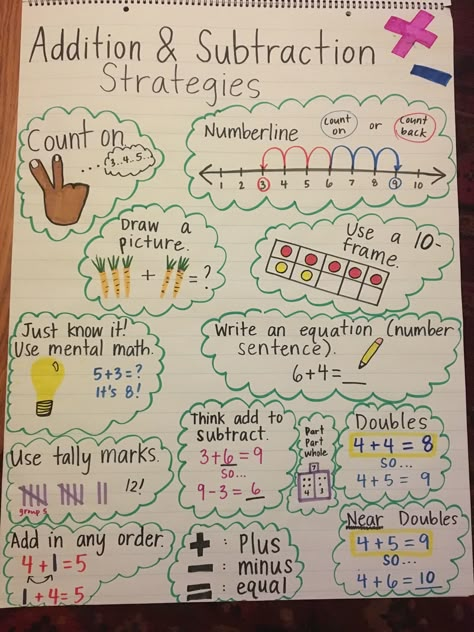 Addition & Subtraction
Strategies
Count on
3..4..5...
Numberline
Count
on
or
Count
back
1 2 3 4 5 6 7 8 9 10
Draw a
picture.
+ = ?
Use a 10-
frame.
Just know it!
Use mental math.
5+3=?
It's 8!
Write an equation (number
sentence).
6+4=__
Use tally marks.
12!
group 5
Think add to
subtract.
3+6=9
so...
9-3=6
Part
Part
whole
Doubles
4+4=8
so...
4+5=9
Add in any order.
4+1=5
1+4=5
+ : Plus
- : minus
= : equal
Near Doubles
4+5=9
so...
4+6=10